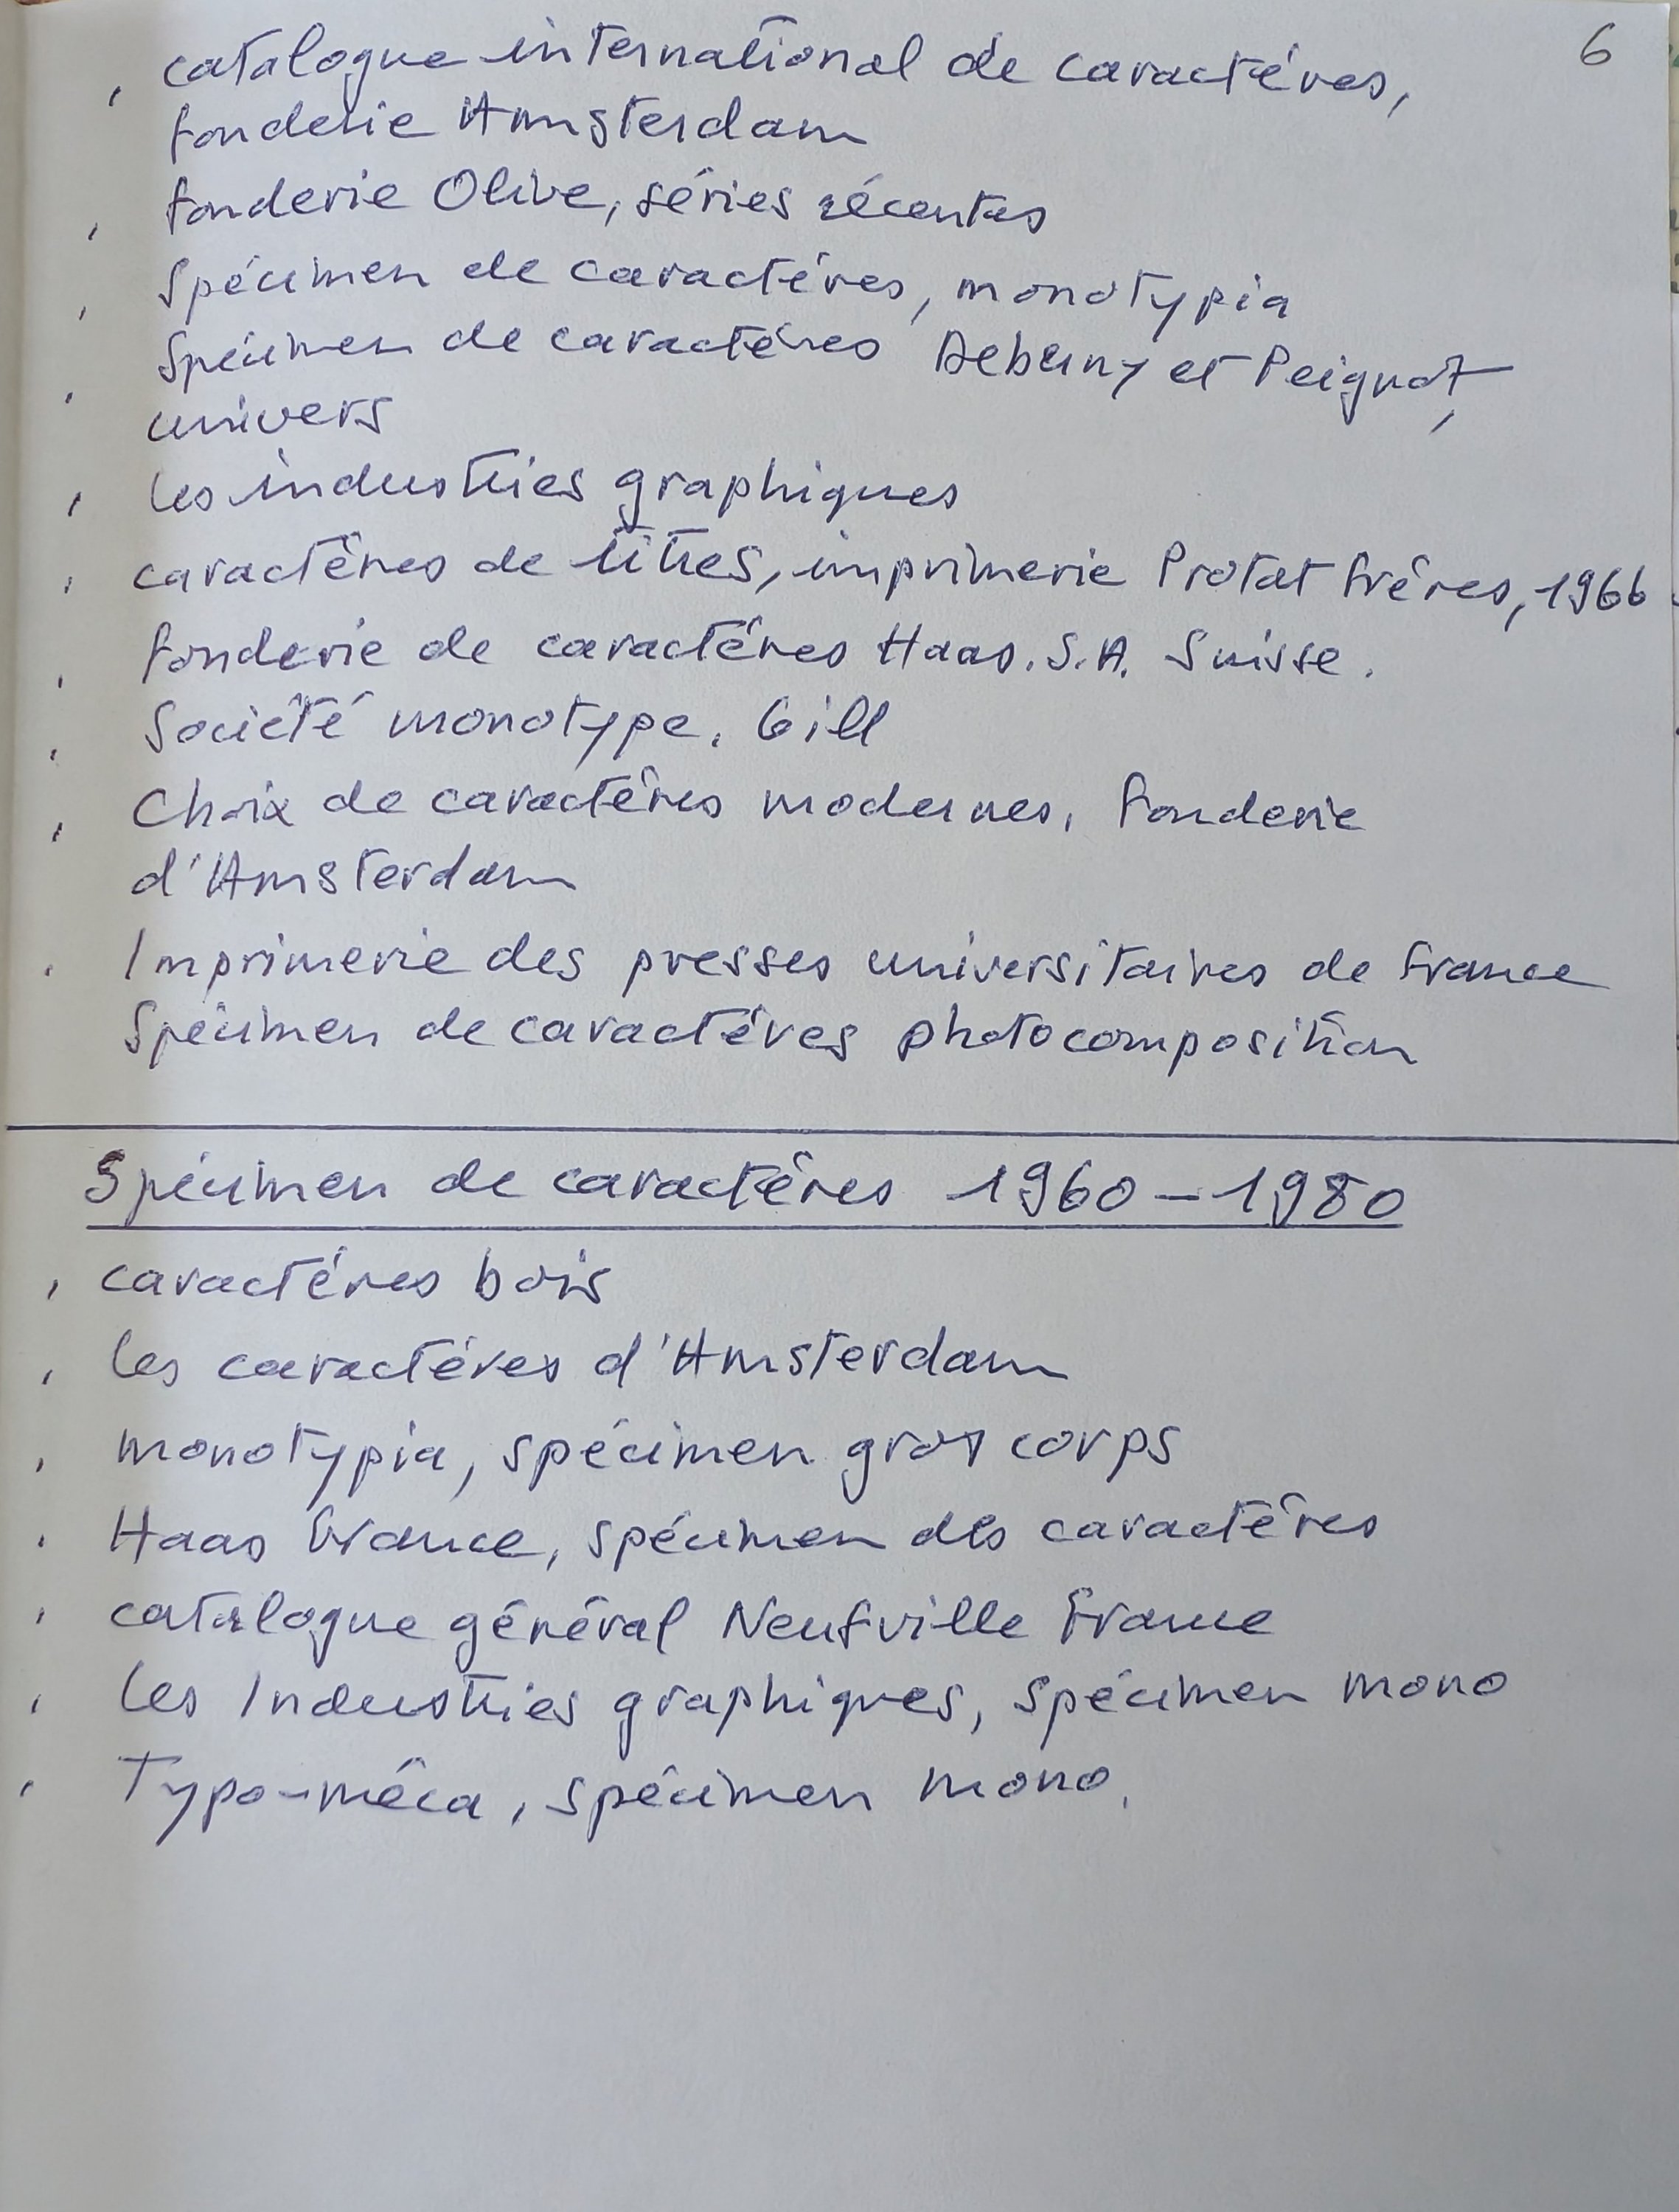 6
, catalogue international de caractères,
fonderie Amsterdam
, fonderie Olive, séries récentes
, Spécimen de caractères, monotypia
, Spécimen de caractères Deberny et Peignot,
univers
, les industries graphiques
, caractères de titres, imprimerie Protat frères, 1966
, fonderie de caractères Haas. S.A. Suisse.
, Société monotype. Gill
, Choix de caractères modernes. Fonderie
d'Amsterdam
. Imprimerie des presses universitaires de France
Spécimen de caractères photocomposition
Spécimen de caractères 1960-1980
, caractères bois
, les caractères d'Amsterdam
, monotypia, spécimen gros corps
. Haas France, spécimen des caractères
, catalogue général Neufville France
, les Industries graphiques, spécimen mono
, Typo-méca, spécimen mono.